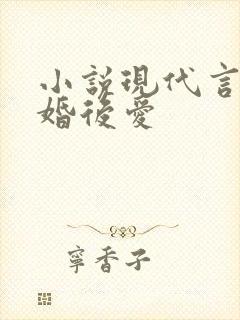 小說現代言
婚後愛
寧香子